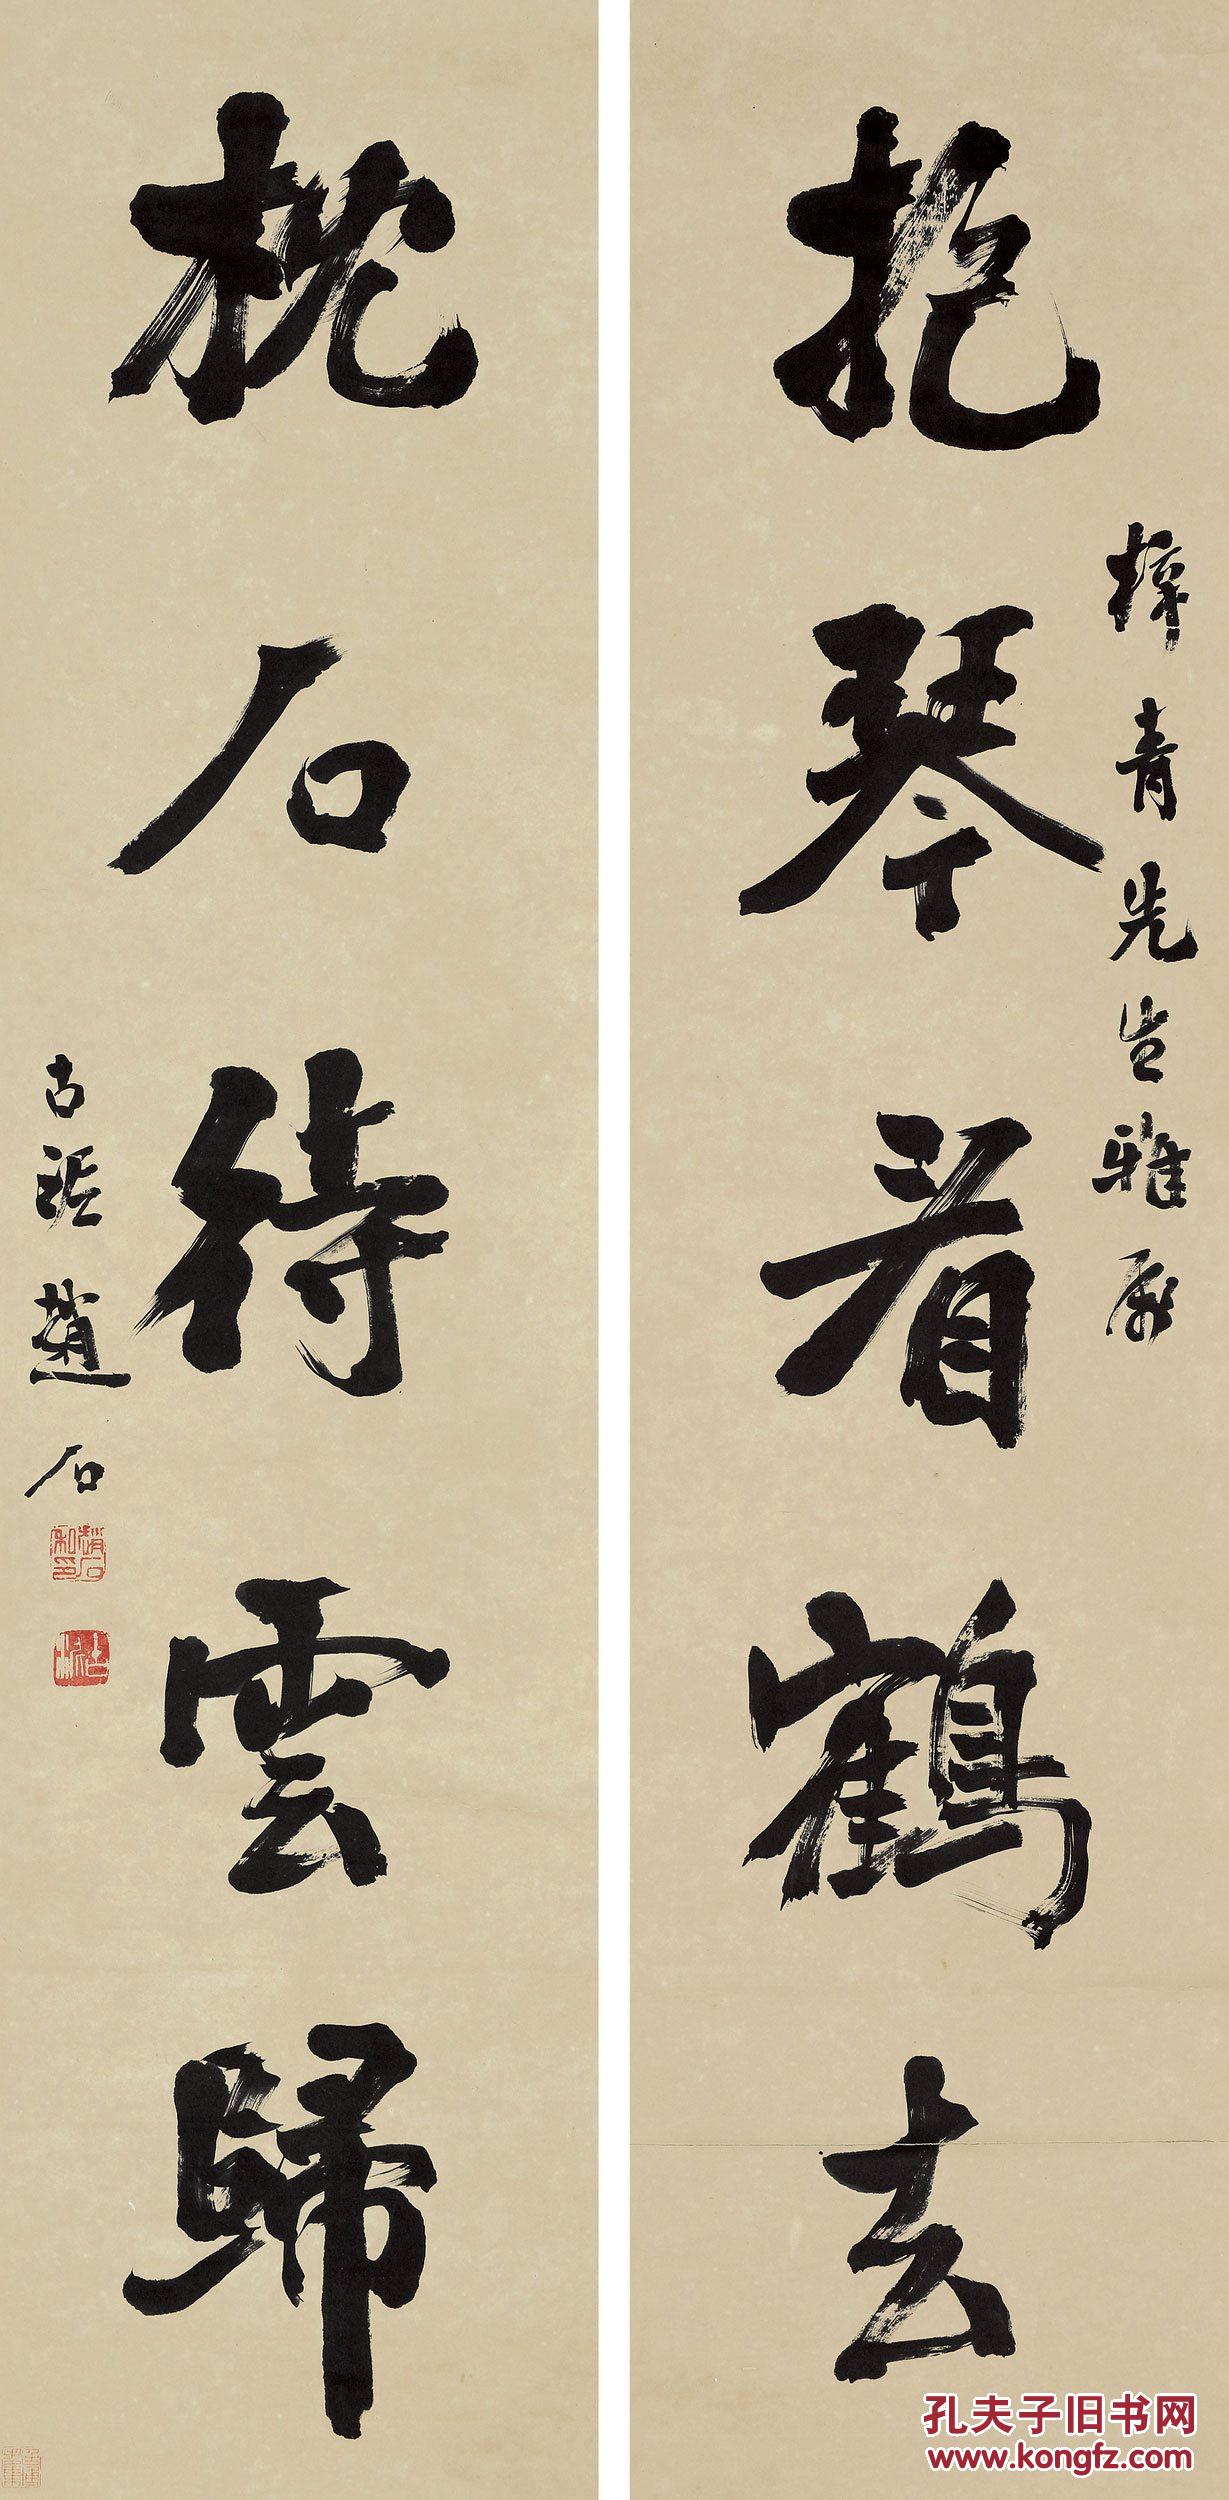 抱琴看鶴去
樟青先生雅屬
枕石待雲歸
古泥趙石
趙石私印
孔夫子旧书网
www.kongfz.com